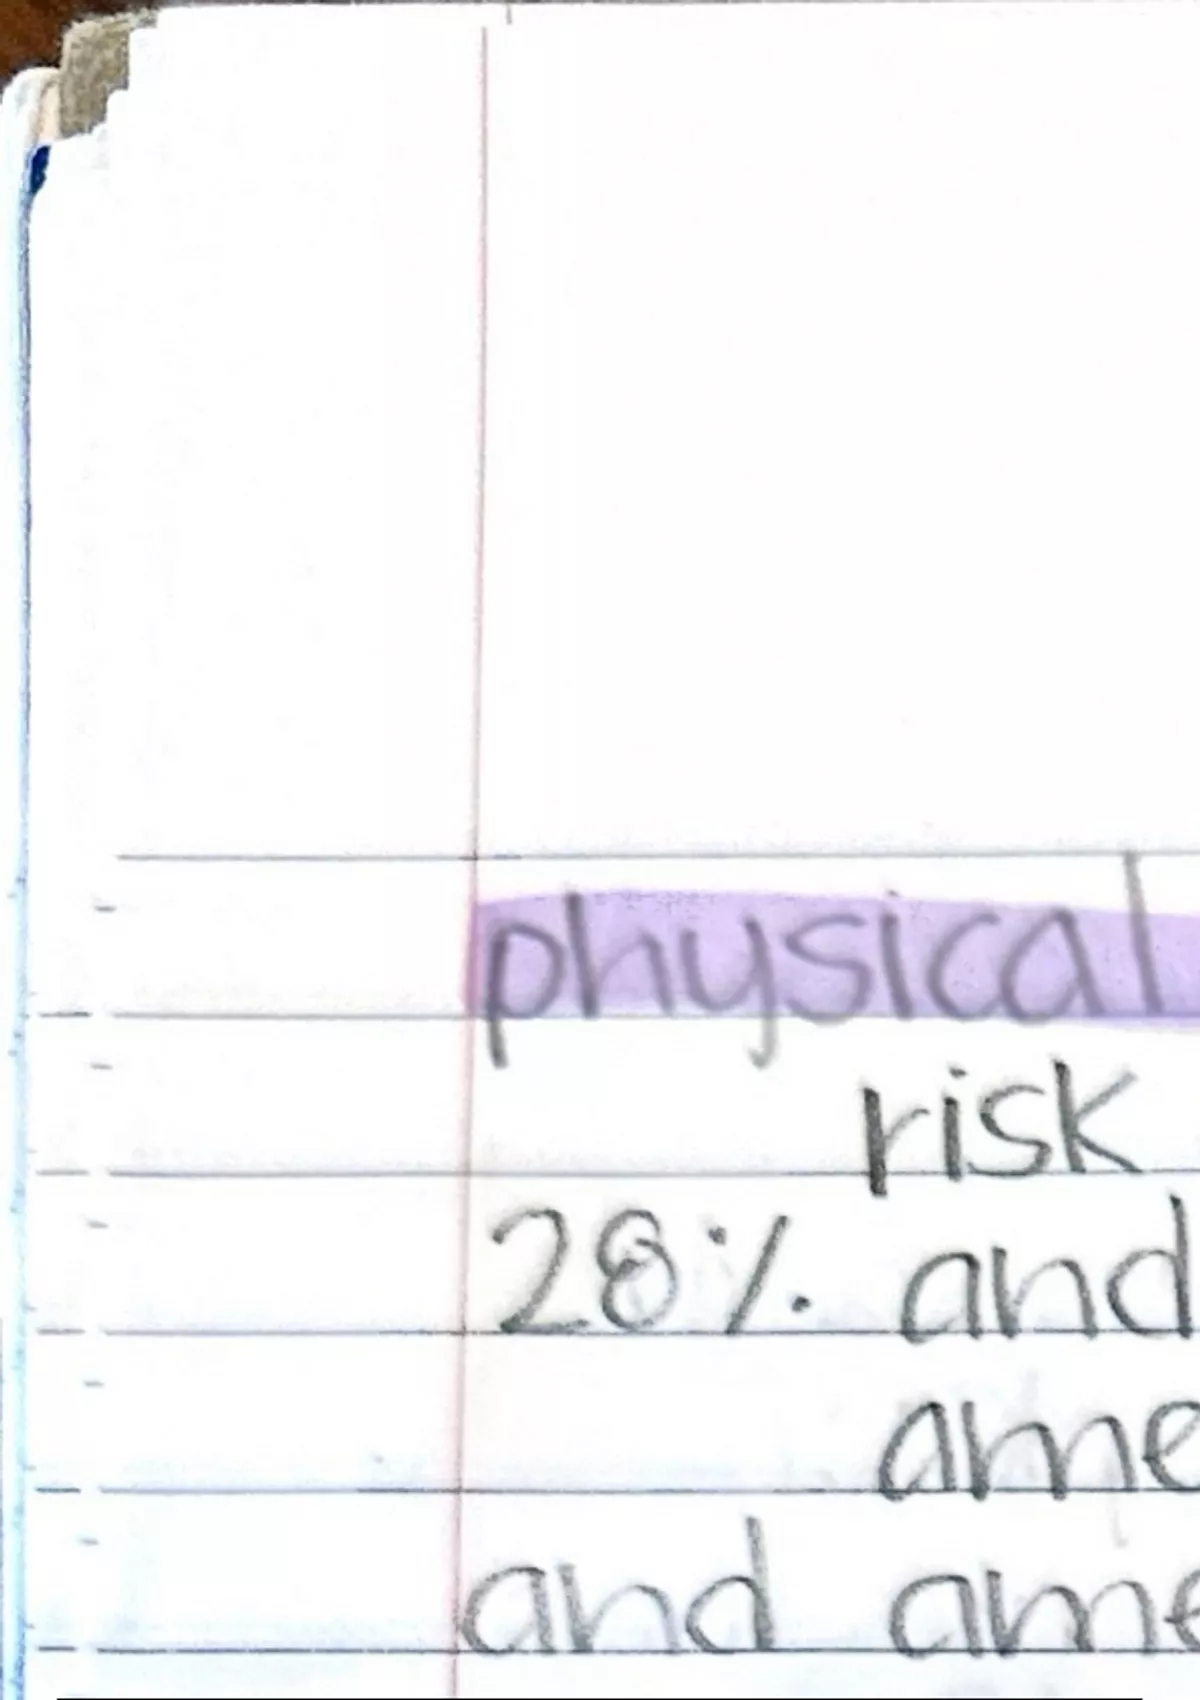 physical
risk
28% and
ame
and ame